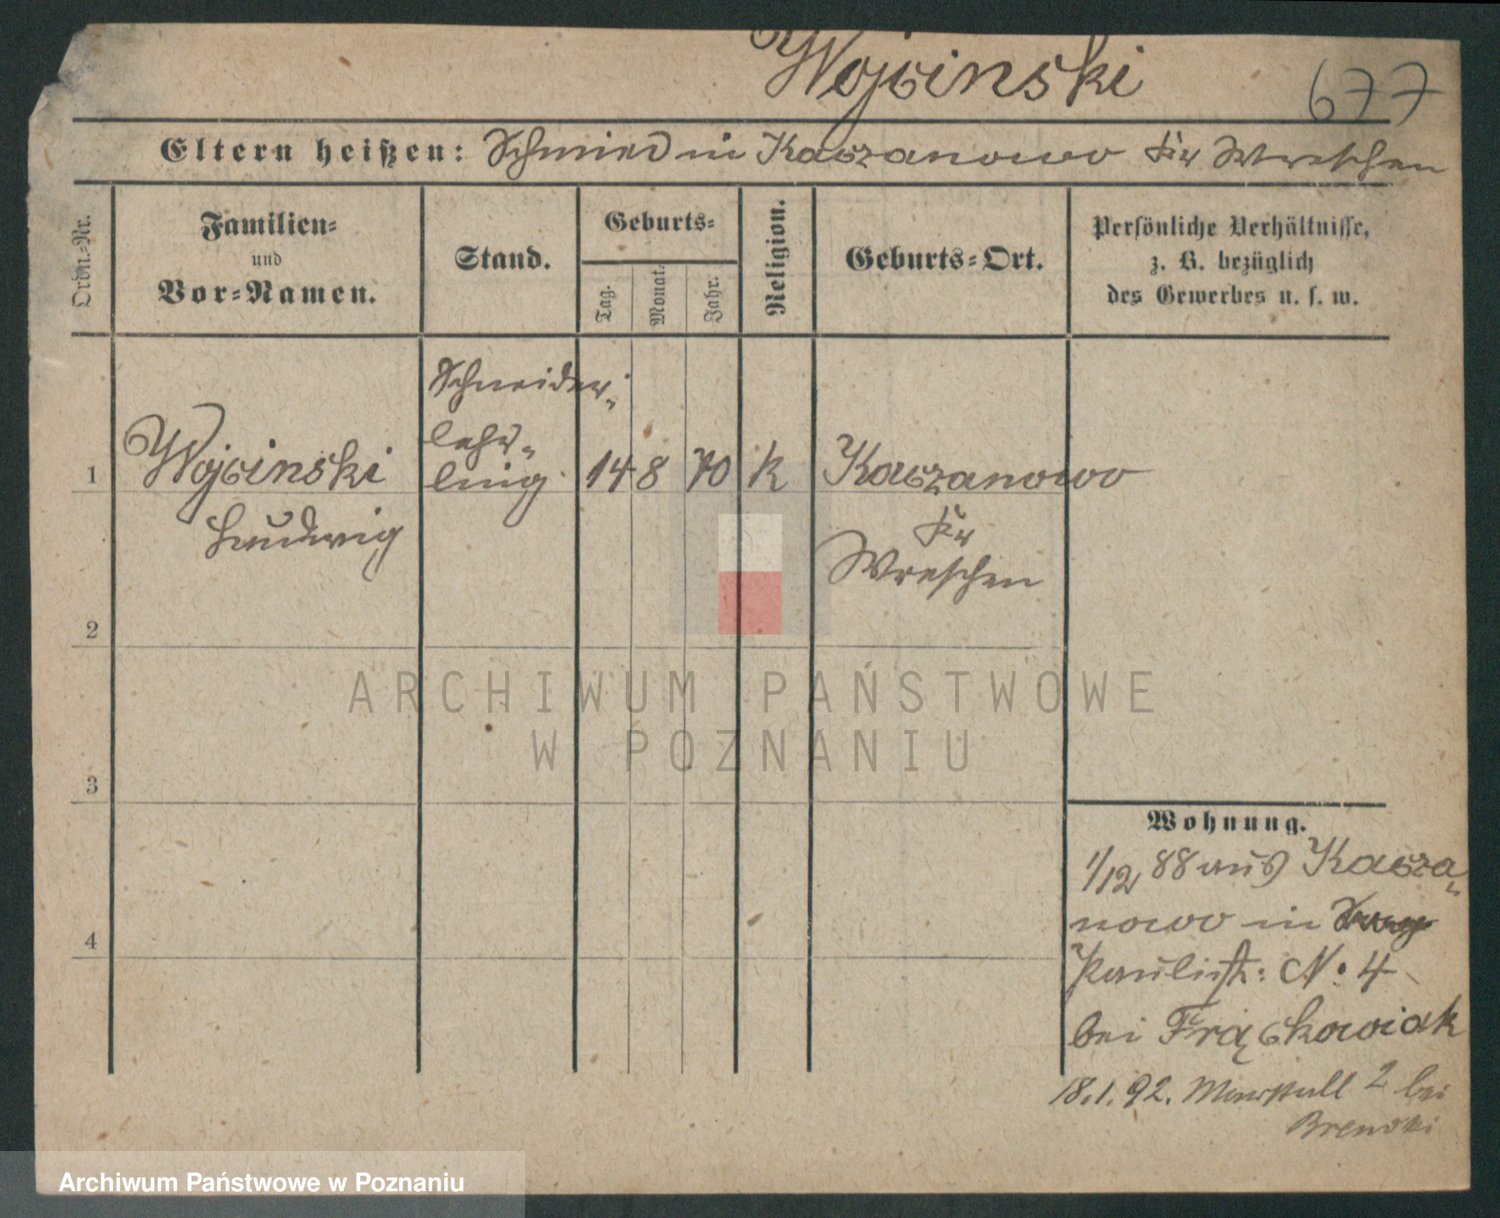 Wojcinski
677
Eltern heißen: Schmied in Kaczanowo Kr Wreschen
Ordn.-Nr.
Familien-
und
Vor-Namen.
Stand.
Geburts-
Tag.
Monat.
Jahr.
Religion.
Geburts-Ort.
Persönliche Verhältnisse,
z. B. bezüglich
des Gewerbes u. s. w.
Schneider-
lehr-
1 Wojcinski ling 14 8 70 k Kaczanowo
Ludwig Kr
Wreschen
2
ARCHIWUM PAŃSTWOWE
W POZNANIU
3
Wohnung.
1/12 88 aus Kacza-
nowo in
4
Paulist: No 4
bei Frąckowiak
18.1.92. Marstall 2 bei
Archiwum Państwowe w Poznaniu